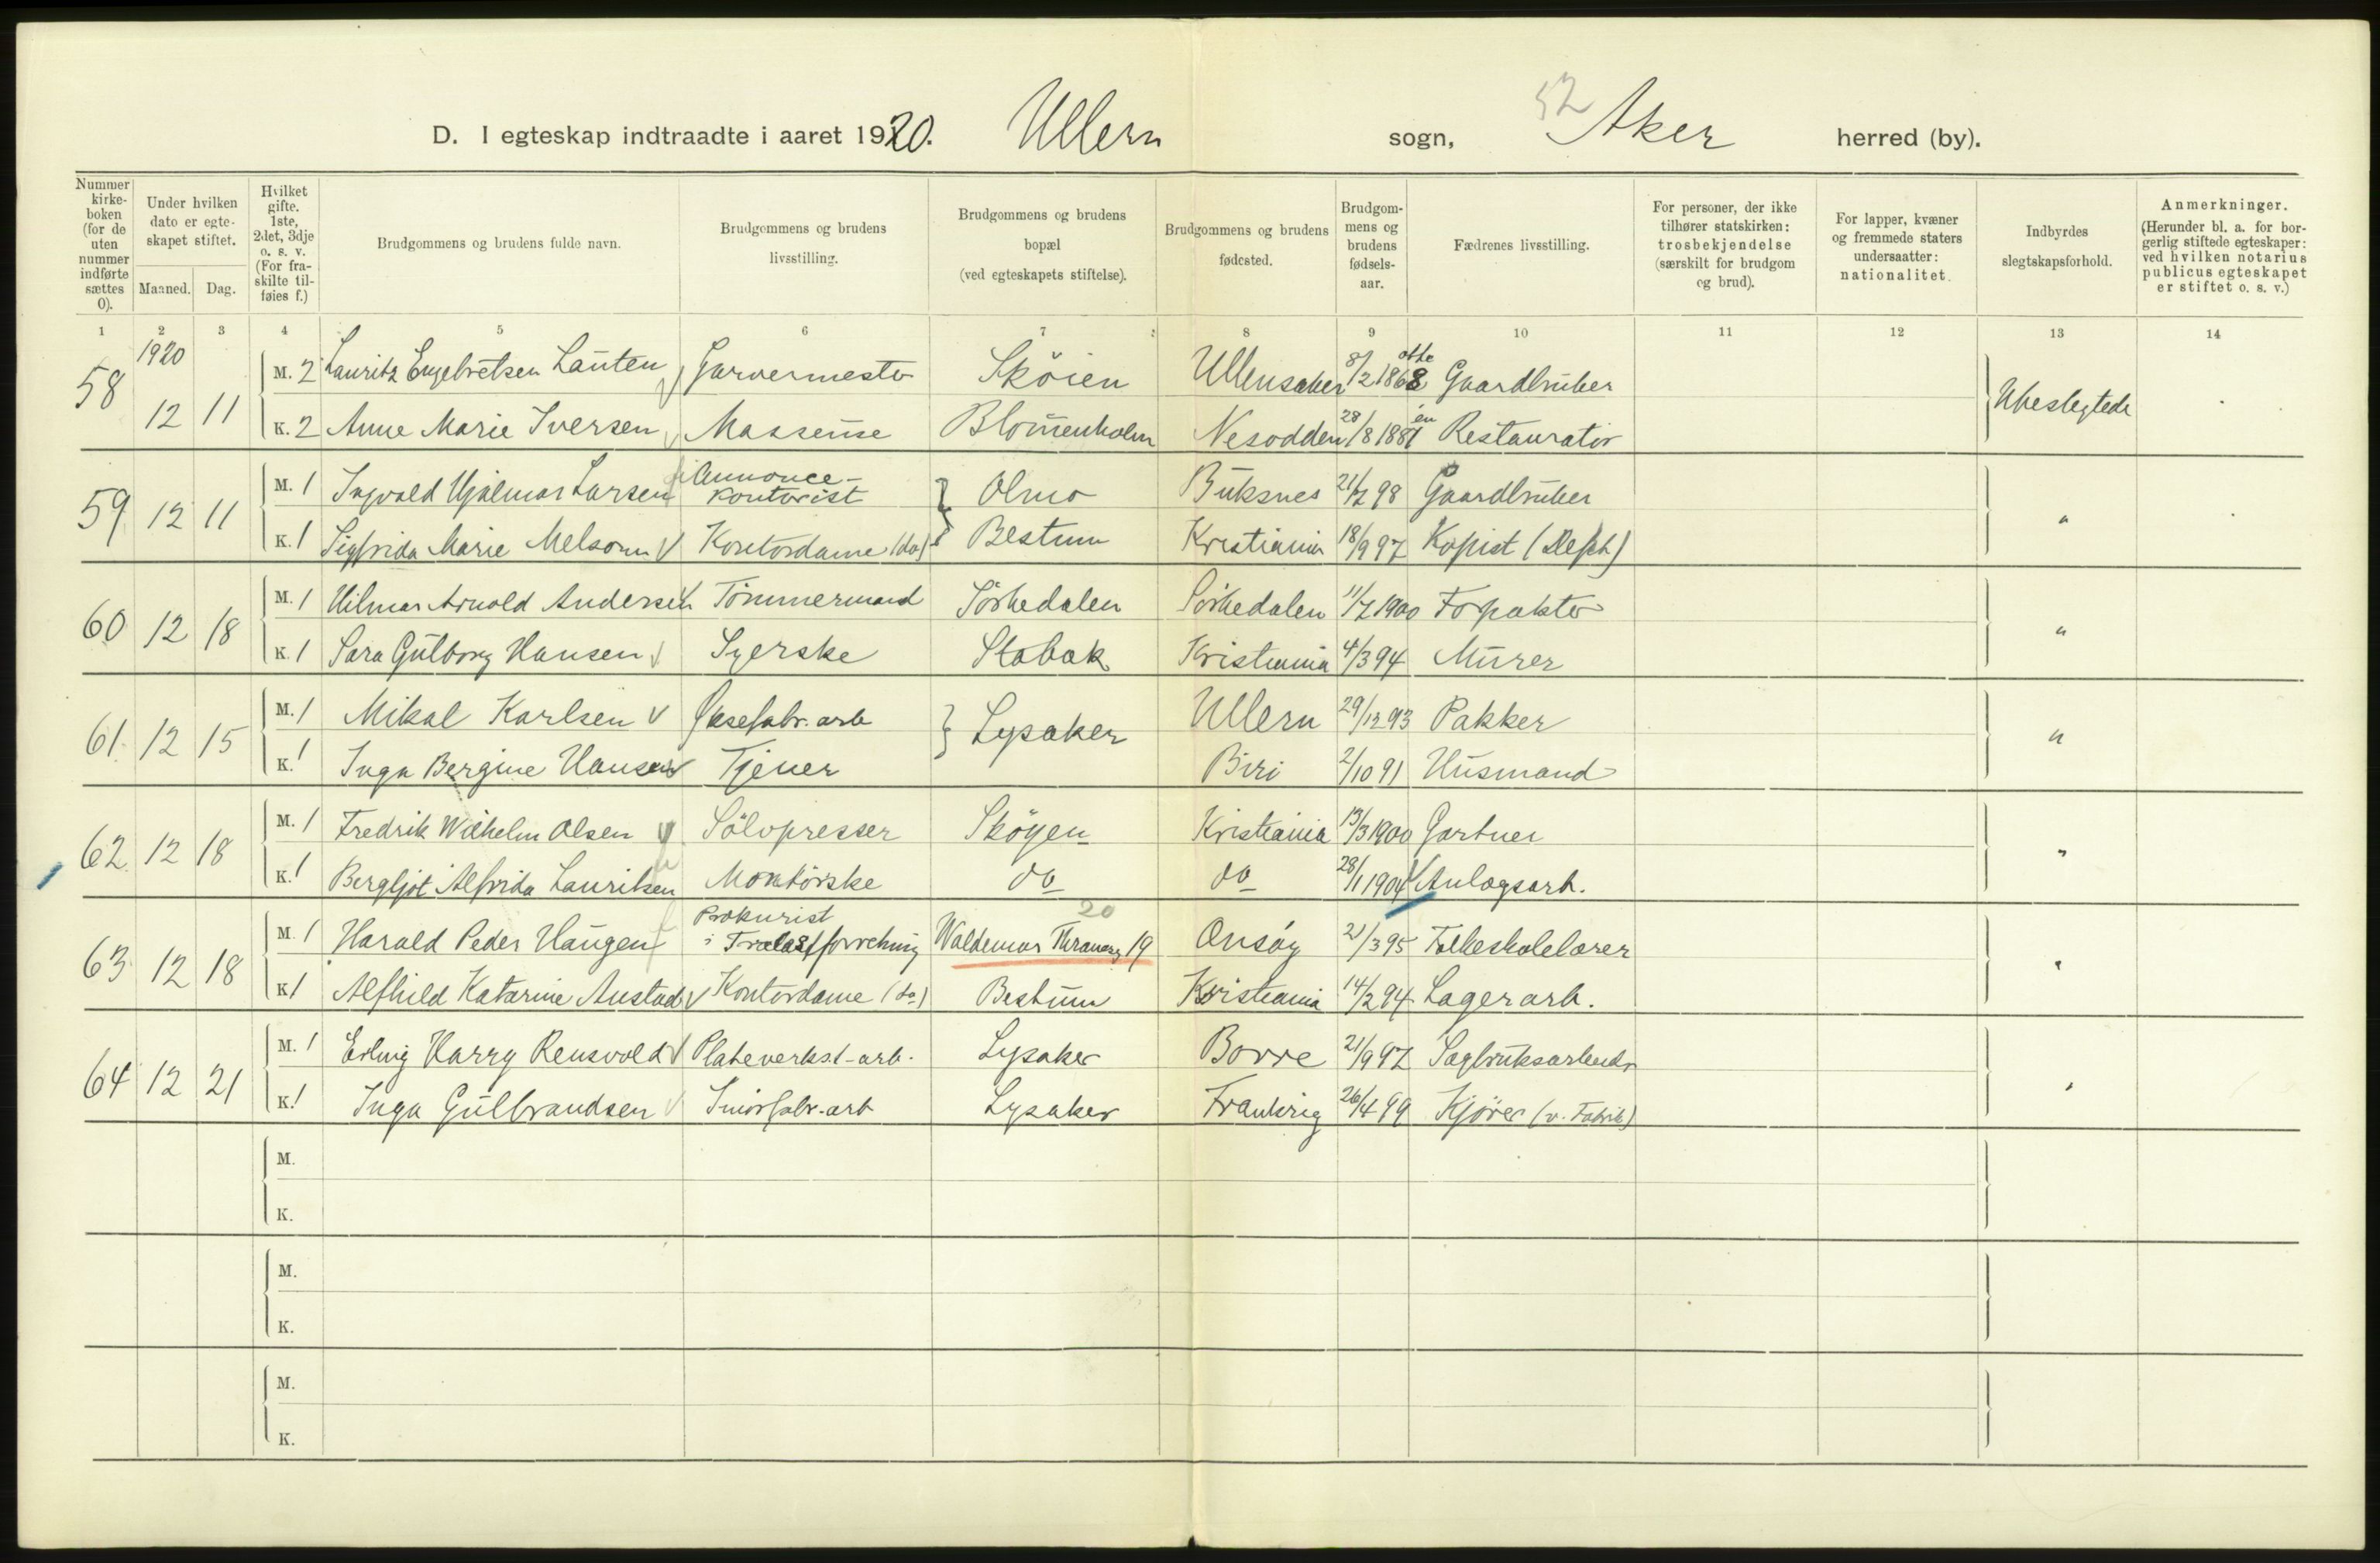 52
D. I egteskap indtraadte i aaret 1920. Ullern sogn, Aker herred (by).
Nummer kirke-boken (for de uten nummer indførte sættes 0).
Under hvilken dato er egte-skapet stiftet.
Maaned. Dag.
Hvilket gifte. 1ste, 2det, 3dje o. s. v. (For fra-skilte til-føies f.)
Brudgommens og brudens fulde navn.
Brudgommens og brudens livsstilling.
Brudgommens og brudens bopæl (ved egteskapets stiftelse).
Brudgommens og brudens fødested.
Brudgom-mens og brudens fødsels-aar.
Fædrenes livsstilling.
For personer, der ikke tilhører statskirken: trosbekjendelse (særskilt for brudgom og brud).
For lapper, kvæner og fremmede staters undersaatter: nationalitet.
Indbyrdes slegtskapsforhold.
Anmerkninger. (Herunder bl. a. for bor-gerlig stiftede egteskaper: ved hvilken notarius publicus egteskapet er stiftet o. s. v.)
1 2 3 4 5 6 7 8 9 10 11 12 13 14
1920
58 12 11 M. 2 Lauritz Engebretsen Lauten Garvermester Skøien Ullensaker 8/2 1868 otte Gaardbruker Ubeslegtede
K. 2 Anne Marie Iversen Massøuse Blommenholm Nesodden 28/8 1881 en Restauratør
59 12 11 M. 1 Ingvald Hjalmar Larsen Annonce-kontorist Olmo Buksnes 21/7 98 Gaardbruker "
K. 1 Sigfrida Marie Melsom Kontordame (do) Bestum Kristiania 18/9 97 Kopist (Dept)
60 12 18 M. 1 Hilmar Arnold Andersen Tømmermand Sørkedalen Sørkedalen 11/7 1900 Forpakter "
K. 1 Sara Gulborg Hansen Syerske Stabæk Kristiania 4/3 94 Murer
61 12 15 M. 1 Mikal Karlsen Øksefabr. arb Lysaker Ullern 29/12 93 Pakker "
K. 1 Inga Bergine Hansen Tjener Biri 2/10 91 Husmand
62 12 18 M. 1 Fredrik Wilhelm Olsen Sølvpresser Skøyen Kristiania 13/3 1900 Gartner "
K. 1 Bergljot Alfrida Lauritsen Montørske do do 28/1 1904 Anlægsarb.
63 12 18 M. 1 Harald Peder Haugen Prokurist i Trælastforretning Waldemar Thranesg 19 20 Onsøy 21/3 95 Folkeskolelærer "
K. 1 Alfhild Katarine Austad Kontordame (do) Bestum Kristiania 14/2 94 Lagerarb.
64 12 21 M. 1 Erling Harry Rensvold Plateverkst-arb. Lysaker Borre 21/9 97 Sagbruksarbeider "
K. 1 Inga Gulbrandsen Smørfabr.-arb Lysaker Frankrig 26/4 99 Kjører (v. Fabrik)
M.
K.
M.
K.
M.
K.